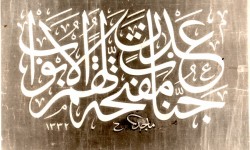 جنات عدن مفتحة لهم الابواب
ماجد
١٣٣٢